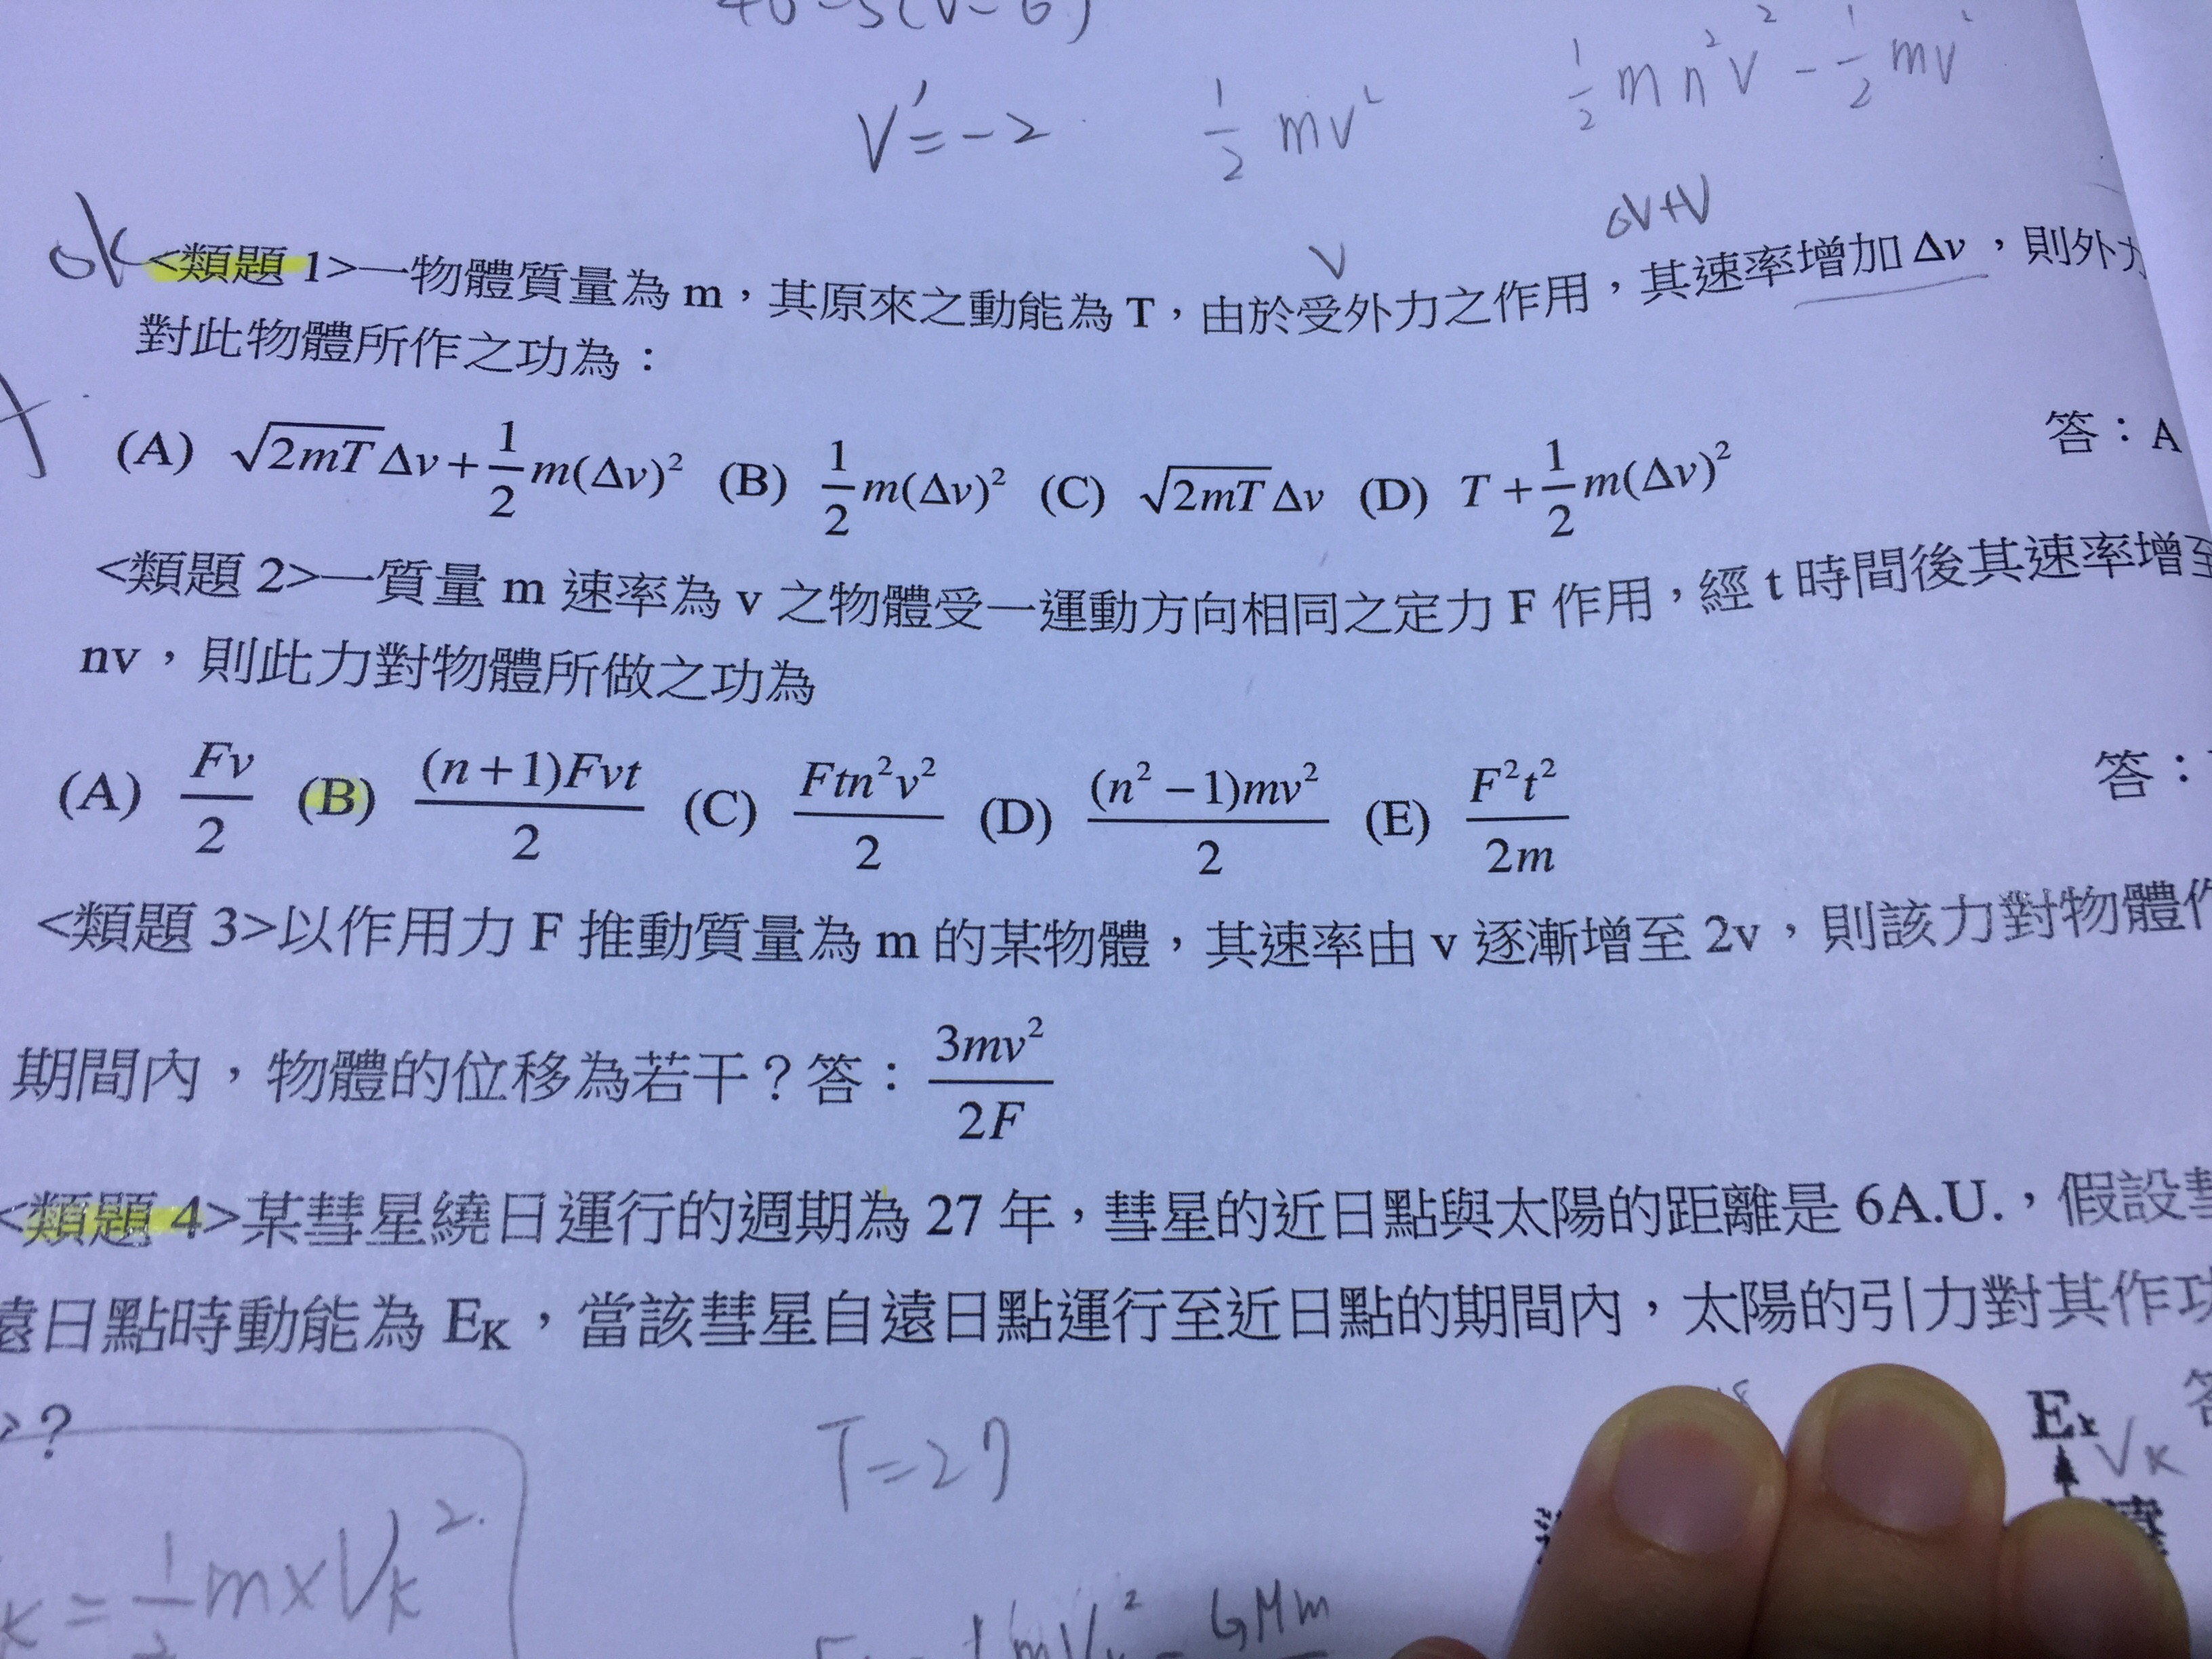 V'=-2
½mv²
½mn²v²-½mv²
V
ΔV+V
ok <類題 1>一物體質量為 m，其原來之動能為 T，由於受外力之作用，其速率增加 Δv，則外力
對此物體所作之功為：
(A) √(2mT)Δv+½m(Δv)² (B) ½m(Δv)² (C) √(2mT)Δv (D) T+½m(Δv)² 答：A
<類題 2>一質量 m 速率為 v 之物體受一運動方向相同之定力 F 作用，經 t 時間後其速率增至
nv，則此力對物體所做之功為
(A) Fv/2 (B) (n+1)Fvt/2 (C) Ftn²v²/2 (D) (n²-1)mv²/2 (E) F²t²/2m 答：
<類題 3>以作用力 F 推動質量為 m 的某物體，其速率由 v 逐漸增至 2v，則該力對物體作
期間內，物體的位移為若干？答：3mv²/2F
<類題 4>某彗星繞日運行的週期為 27 年，彗星的近日點與太陽的距離是 6A.U.，假設彗
遠日點時動能為 E_K，當該彗星自遠日點運行至近日點的期間內，太陽的引力對其作功
？
答
E_k
V_K
T=27
K=½m×V_K²
GMm